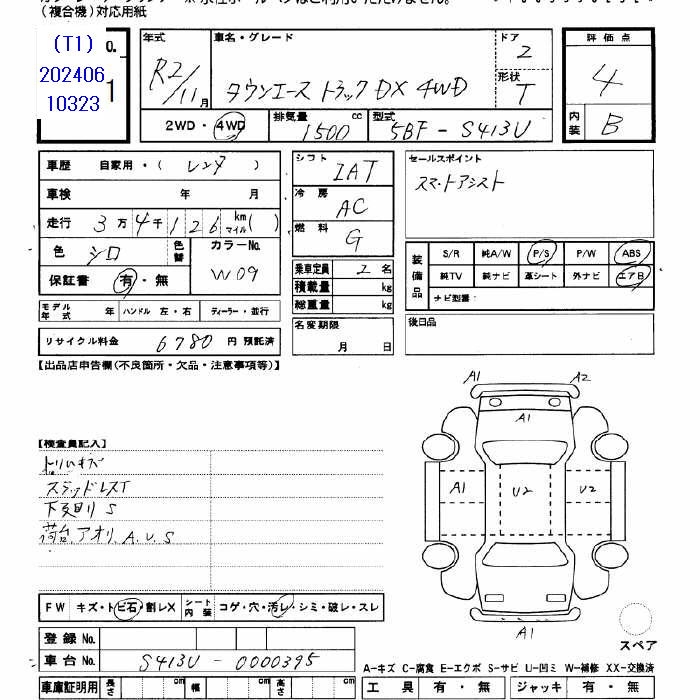 (複合機)対応用紙
(T1) O.
202406
10323 1
年式 車名・グレード ドア 2 評価点
R2/11月 タウンエース トラック DX 4WD 形状 T 4
2WD・4WD 排気量 1500 cc 型式 5BF-S413U 内装 B
車歴 自家用・(レンタ)
車検 年 月
走行 3万4千126 km マイル( )
色 シロ 色替 カラーNo. W09
保証書 有・無
モデル年式 年 ハンドル 左・右 ディーラー・並行
リサイクル料金 6780 円 預託済
シフト IAT
冷房 AC
燃料 G
乗車定員 2 名
積載量 kg
総重量 kg
名変期限 月 日
セールスポイント
スマートアシスト
装備品 S/R 純A/W P/S P/W ABS
純TV 純ナビ 革シート 外ナビ エアB
ナビ型番:
後日品
【出品店申告欄(不良箇所・欠品・注意事項等)】
A1 A2
A1
A1 U2 U2
A1
スペア
【検査員記入】
スタッドレスT
下廻り S
荷台、アオリ A.U.S
FW キズ・トビ石・割レX シート内装 コゲ・穴・汚レ・シミ・破レ・スレ
登録 No.
車台 No. S413U-0000395
車庫証明用 長さ cm 幅 cm 高さ cm
A-キズ C-腐食 E-エクボ S-サビ U-凹ミ W-補修 XX-交換済
工具 有・無 ジャッキ 有・無